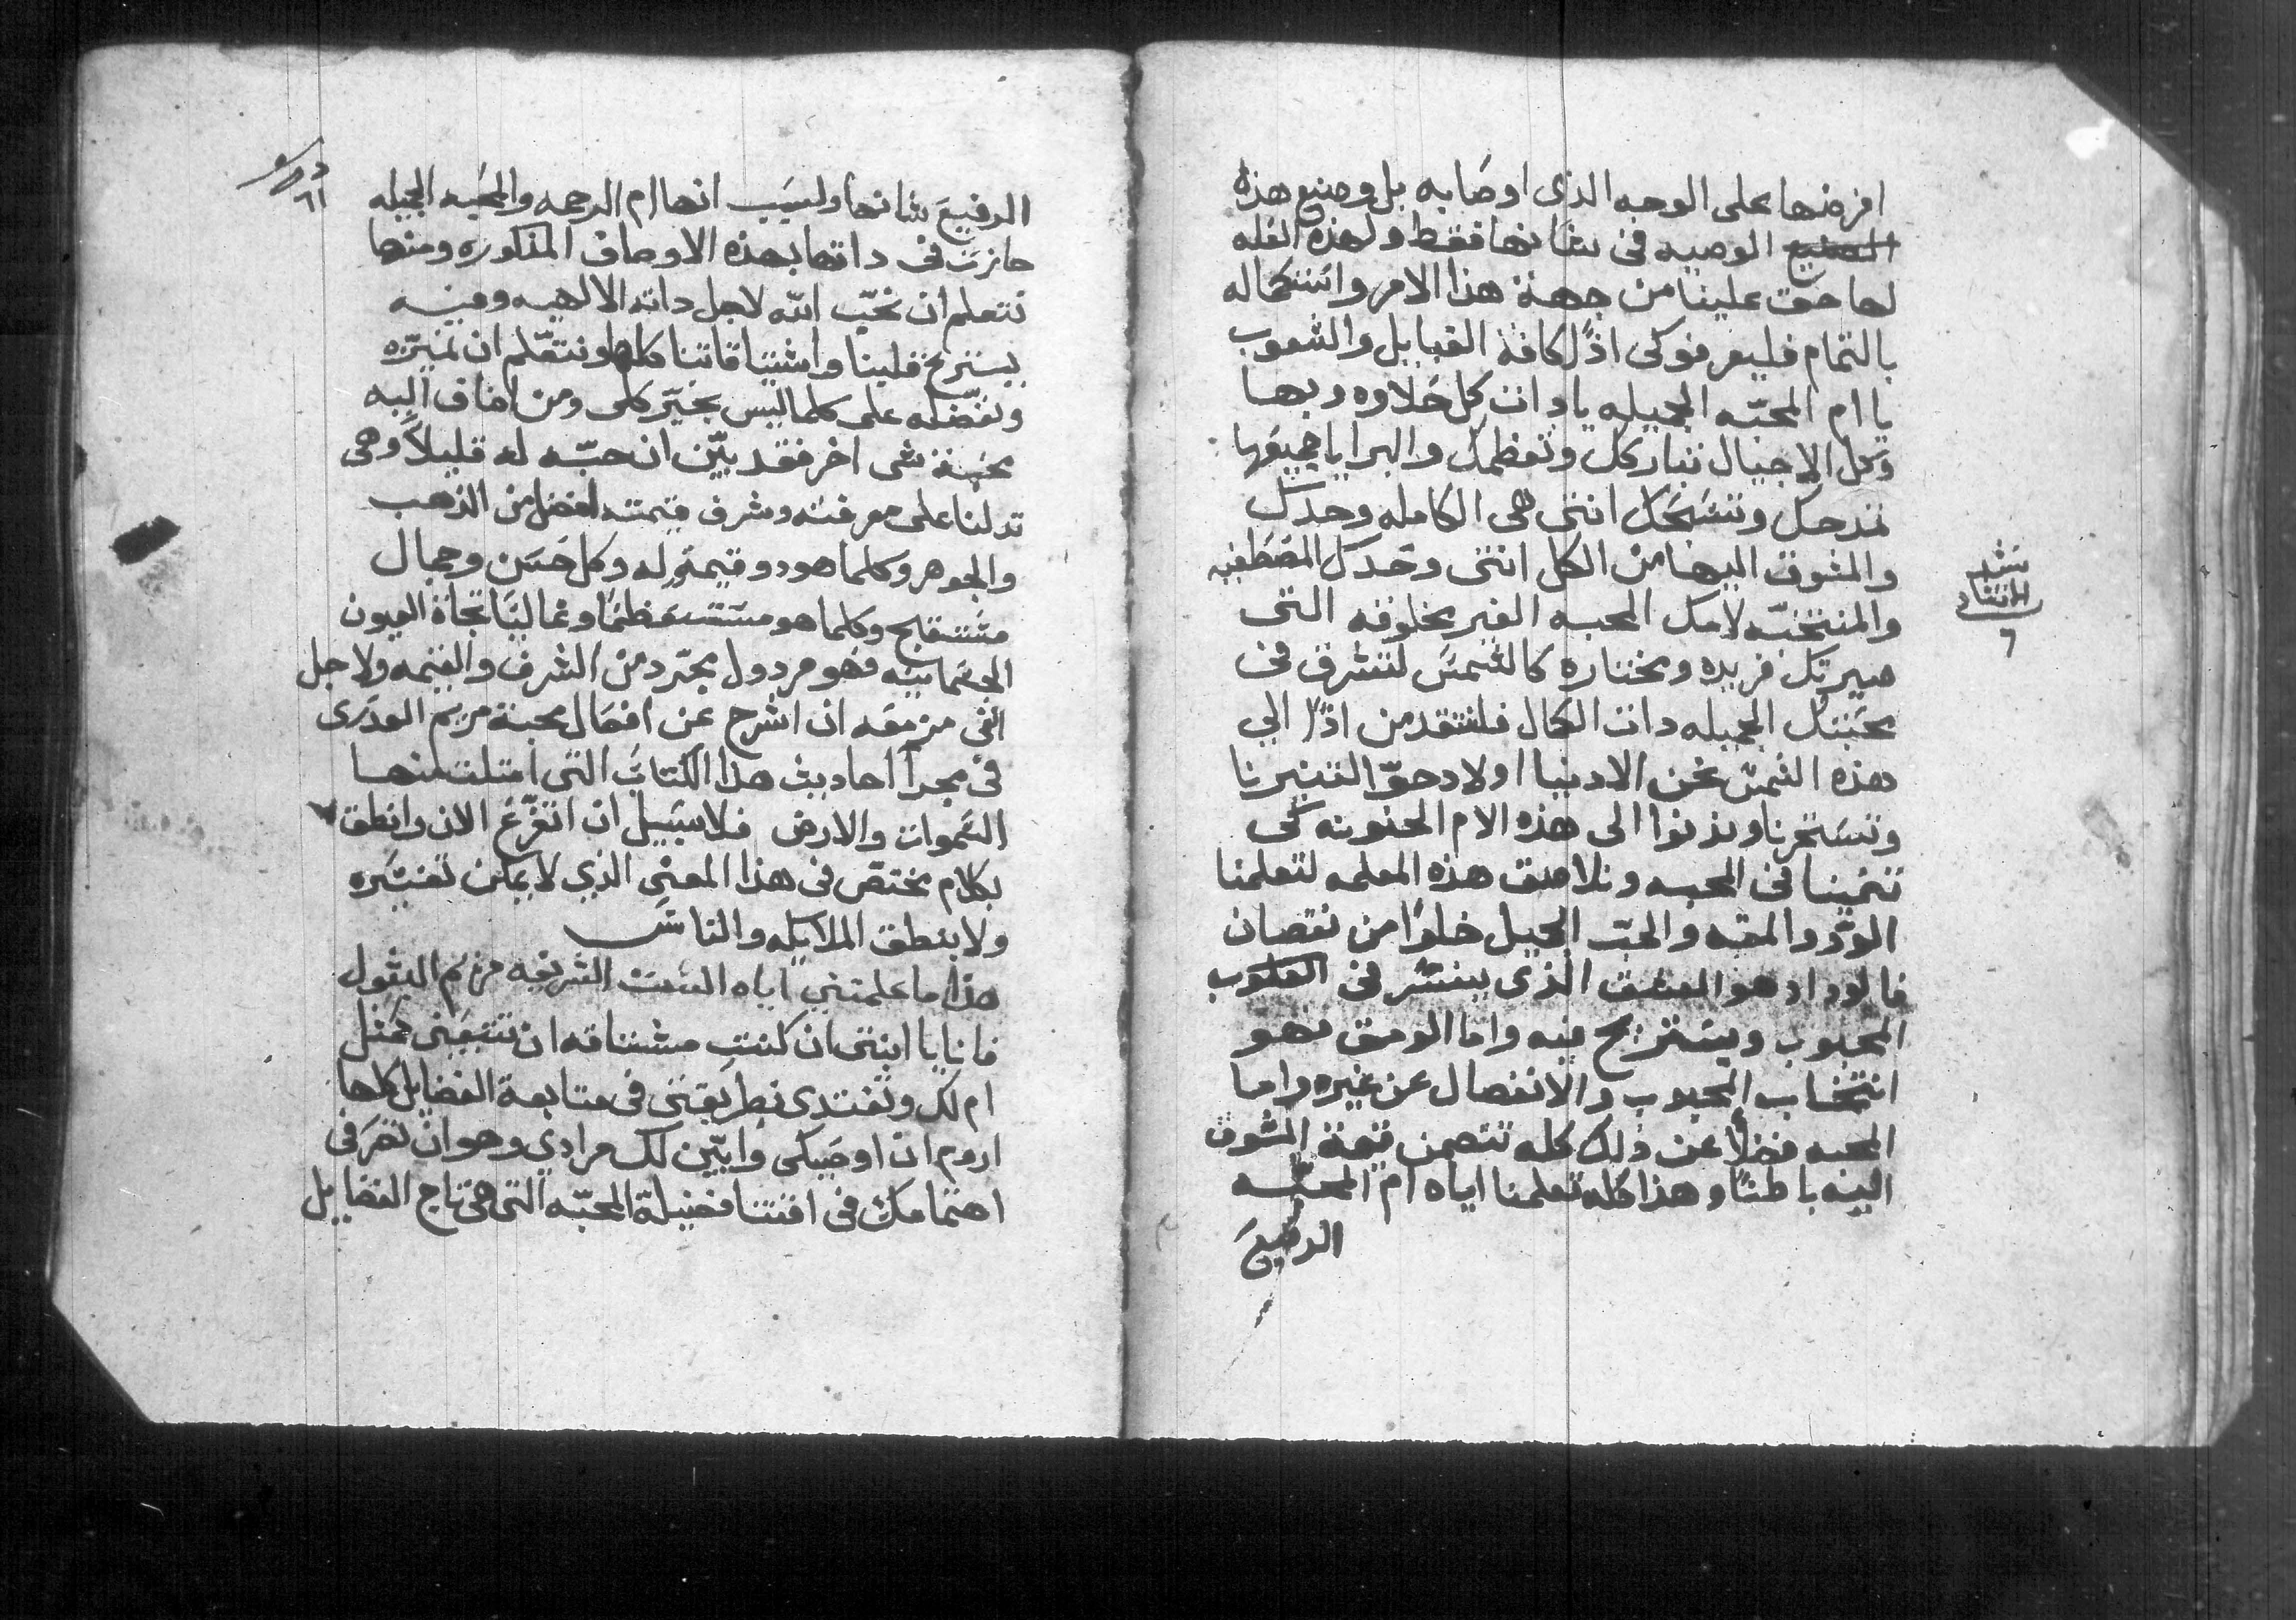 افرضها على الوجه الذى اوصا به بل وصنيع هذه
الصنيع الوصيه فى شانها فقط ولهذه العله
لها حق علينا من جهة هذا الامر واستكماله
بالتمام فليعرفوكى اذًا كافة القبايل والشعوب
يا ام المحبّه الجميله يا دات كل حلاوه وبها
وكل الاجيال تباركك وتعظمك والبرايا جميعها
تمدحك وتسبّحك انتى هى الكامله وحدك
والمشوق اليها من الكل انتى وحدك المصطفيه
والمنتخبّه لامك المحبه الغير مخلوقه التى
صيرتك فريده ومختاره كالشمس لتشرق فى
محبتك الجميله دات الكمال فلنتقدمن اذًا الي
هذه الشمس نحن الادنيا اولاد حوّا لتنيرنا
وتسخرنا وندنوا الى هذه الام الحنونه لكى
تنمينا فى المحبه ونلاصق هذه المعلمه لتعلمنا
الودّ والمقه والحبّ الجميل خلوًا من نقصان
فالوداد هو العشق الذى ينسرّ فى القلوب
المحبوب ويستريح فيه واما الومق فهو
انتخاب المحبوب والانفصال عن غيره واما
المحبه فضلًا عن ذلك كله تتضمن قيمة المشوق
اليه باطنًا وهذا كله تعلمنا اياه ام المحبّه
الرفيعَ
سَشيد
الانشاد
٦
٦١
الرفيعَ شانها ولسَبب انها ام الرحمه والمحبه الجميله
حازت فى داتها بهذه الاوصاف المذكوره ومنها
نتعلم ان نحبّ الله لاجل داته الالهيه وفيه
يستريح قلبنا واشتياقاتنا كلها ونتعّلم ان نميّزه
ونفضّله على كلما ليس بخيّر كلى ومن اضاف اليه
محبة شى اخر فقد بيّن ان حبّه له قليلًا وهى
تدلنا على معرفته وشرف قيمته افضل من الذهب
والجوهر وكلما هو دو قيمةٍ له وكل حَسَن وجمال
مستقبح وكلما هو مستعظمًا وغاليًا تجاة العيون
الجسمانيّه فهو مردول مجرّد من الشرف والقيمه ولاجل
انّى مزمعَه ان اشرح عن افعال محبة مريم العدرى
فى مجرا احاديث هذا الكتاب التى امتلت منها
السّموات والارض فلا سَبيل ان اتفرّغ الان وانطق
بكلام مختصّ فى هذا المعنى الذي لا يمكن تفسّره
ولا ينطق الملايكه والناسَ
هذا ما علمتني اياه السَت الشريفه مريم البتول
فانا يا ابنتى ان كنتِ مشتاقه ان تتبعينى كمثل
ام لك وتقتدى بطريقتى فى متابعة الفضايل كلها
اروم ان اوصَيكى وابيّن لك مرادي وهو ان تصَرفى
اهتمامك فى اقتنا فضيلة المحبّه التى هى تاج الفضايل